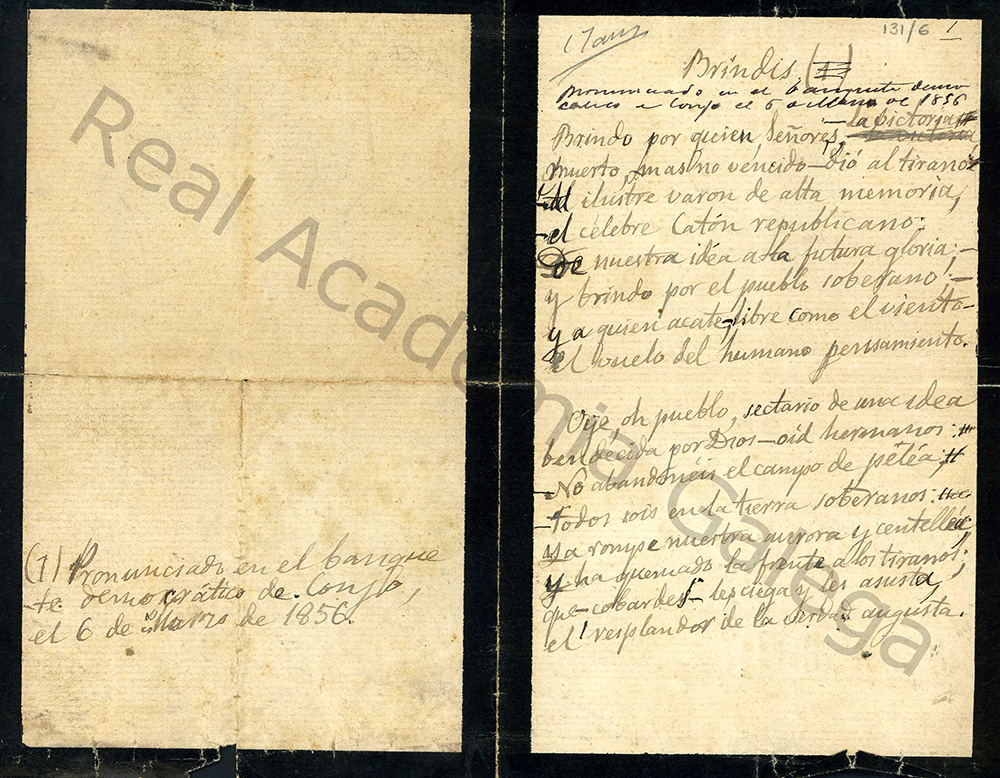 (1) Pronunciado en el banque
-te democrático de Conjo,
el 6 de Marzo de 1856.
131/6 1
17 anz
Brindis, (1)
pronunciado en el banquete demo
cático e Conjo el 6 de Marzo de 1856
Brindo por quien, Señores, - la victoria
muerto, mas no vencido - dió al tirano:
Al ilustre varon de alta memoria,
-el célebre Catón republicano:
De nuestra idéa a la futura gloria; -
y brindo por el pueblo soberano; -
y a quien acate - libre como el viento -
el vuelo del humano pensamiento.
Oye, oh pueblo, sectario de una idea
bendecida por Dios - oid hermanos:
-No abandonéis el campo de peléa;
-Todos sois en la tierra soberanos:
ya rompe nuestra aurora y centelléa
y ha quemado la frente a los tiranos;
que - cobardes - les ciega y les asusta,
el resplandor de la verdad augusta.
Real Academia Galega